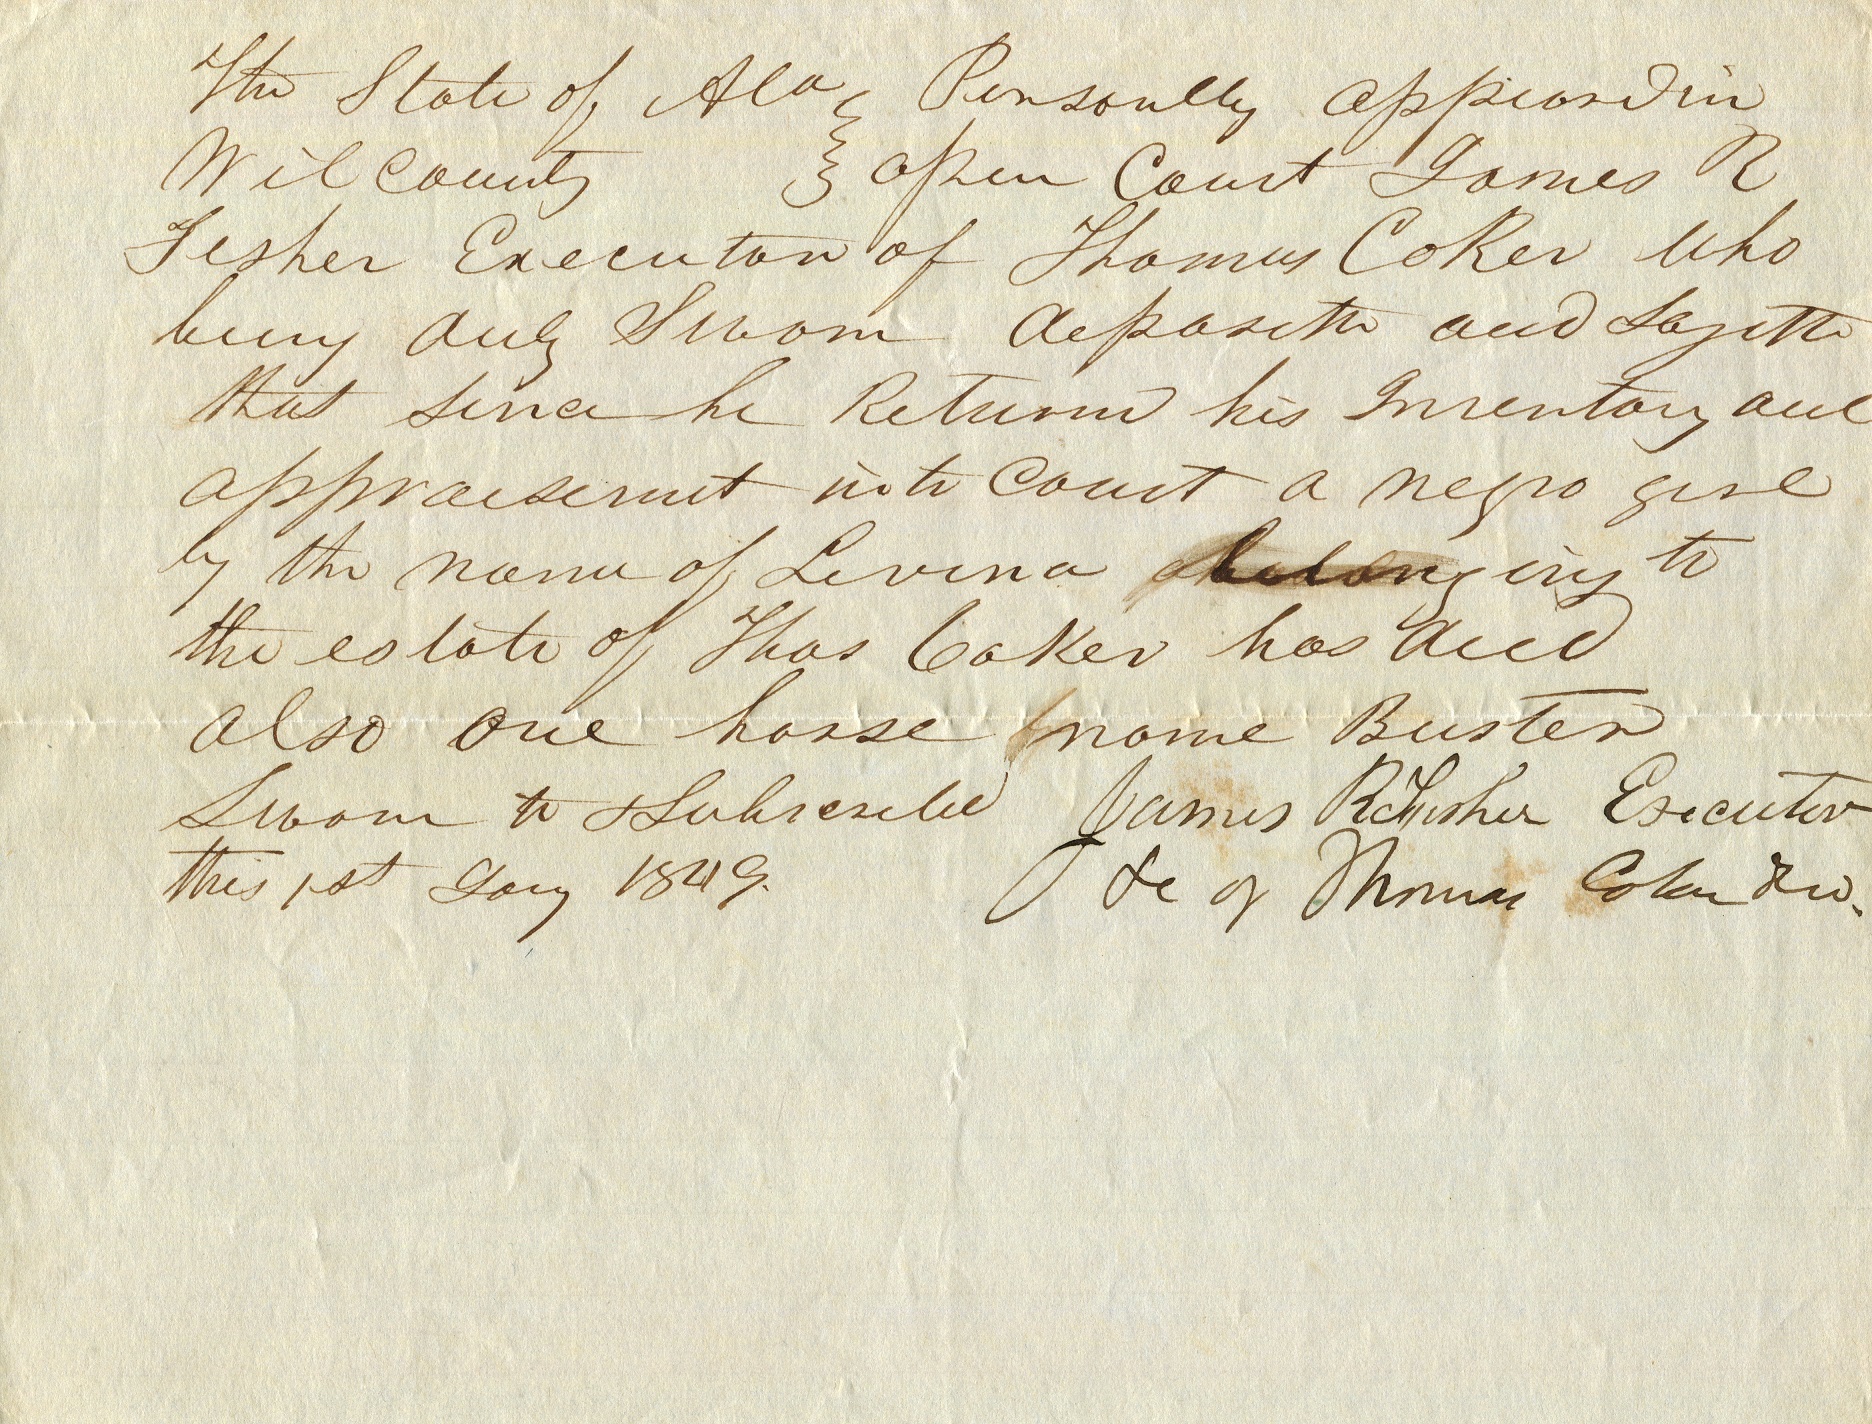 The State of Ala } Personally appeard in
Wil County } open Court James R
Tesher Executor of Thomas Coker who
being duly Sworn deposeth and Sayeth
that since he Returnd his Inventory and
appraisement into Court a negro girl
by the name of Levina belonging to
the estate of Thos Coker has died
also one horse name Buster
Sworn to & Subscribed James R Executor
this 1st Jany 1849. &c of Thomas Coker